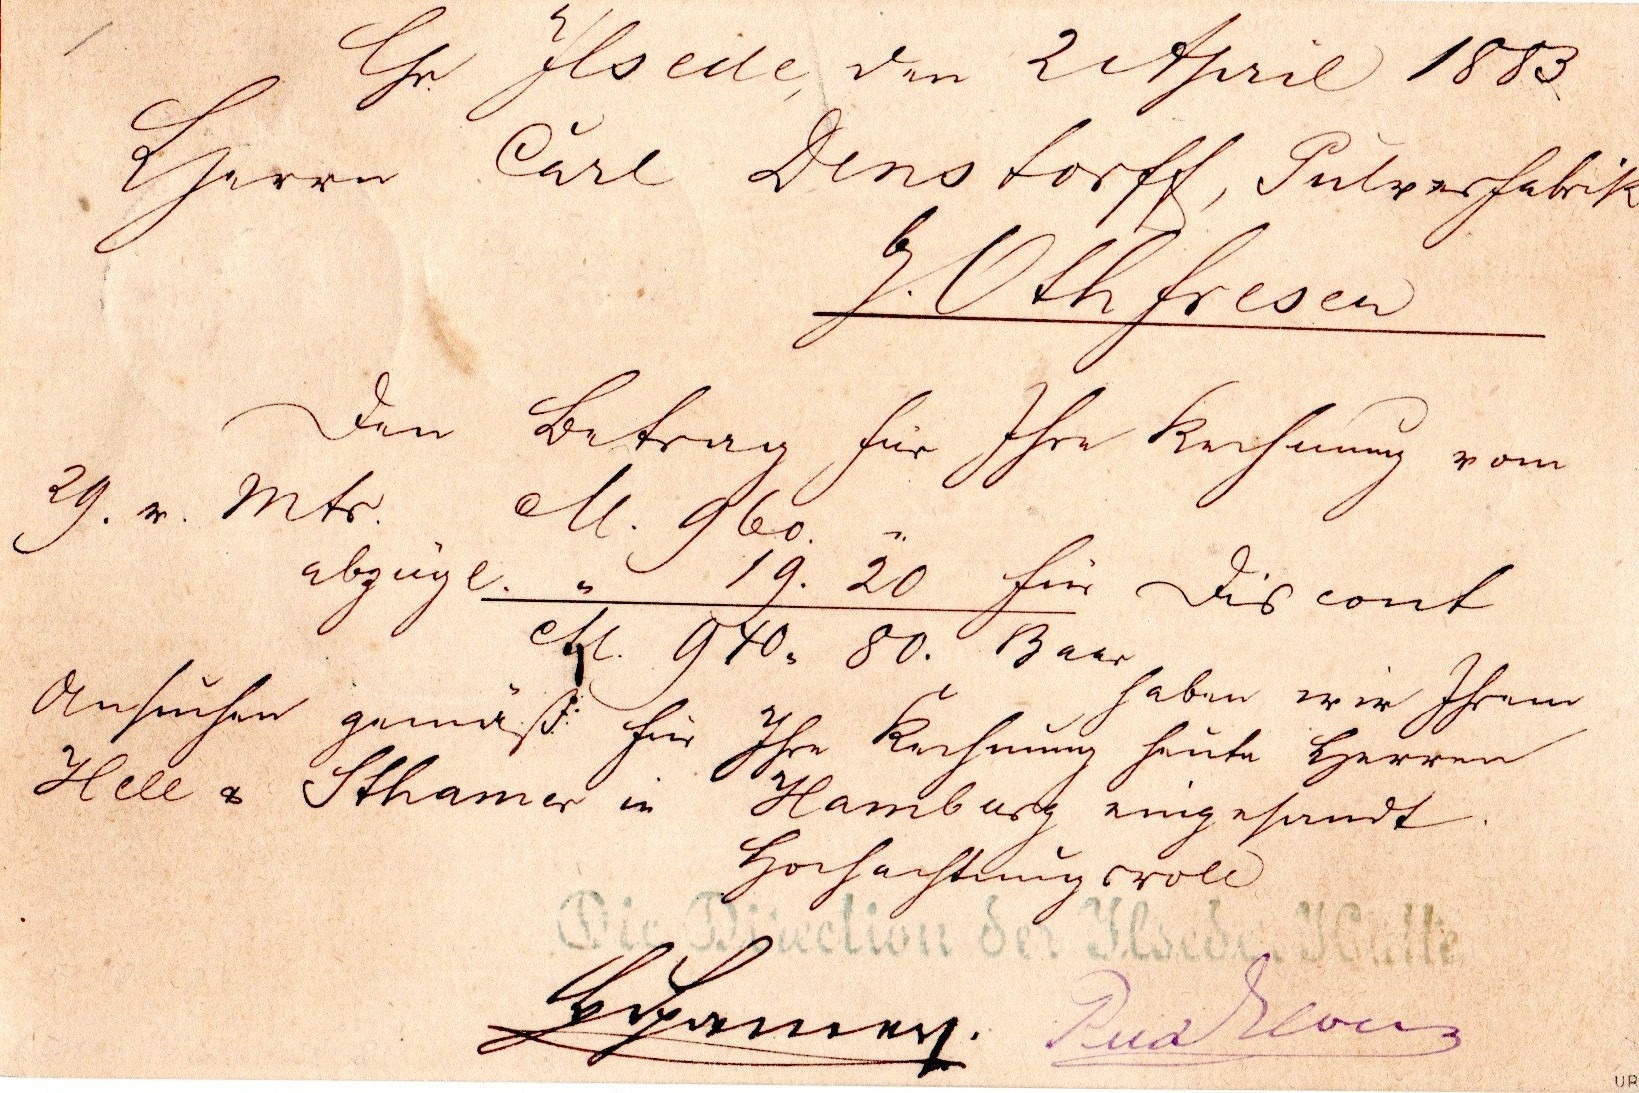 Gr. Ilsede, den 2 April 1883
Herrn Carl Denstorff, Pulverfabrik
b/. Othfresen
Den Betrag für Ihre Rechnung vom
29. v. Mts. M. 960. "
abzügl. " 19. 20 für Discont
M. 940. 80. Baar
haben wir Ihrem
Ansuchen gemäß für Ihre Rechnung heute Herren
Hell & Sthamer in Hamburg eingesandt.
Hochachtungsvoll
Die Direction der Ilseder Hütte
UR